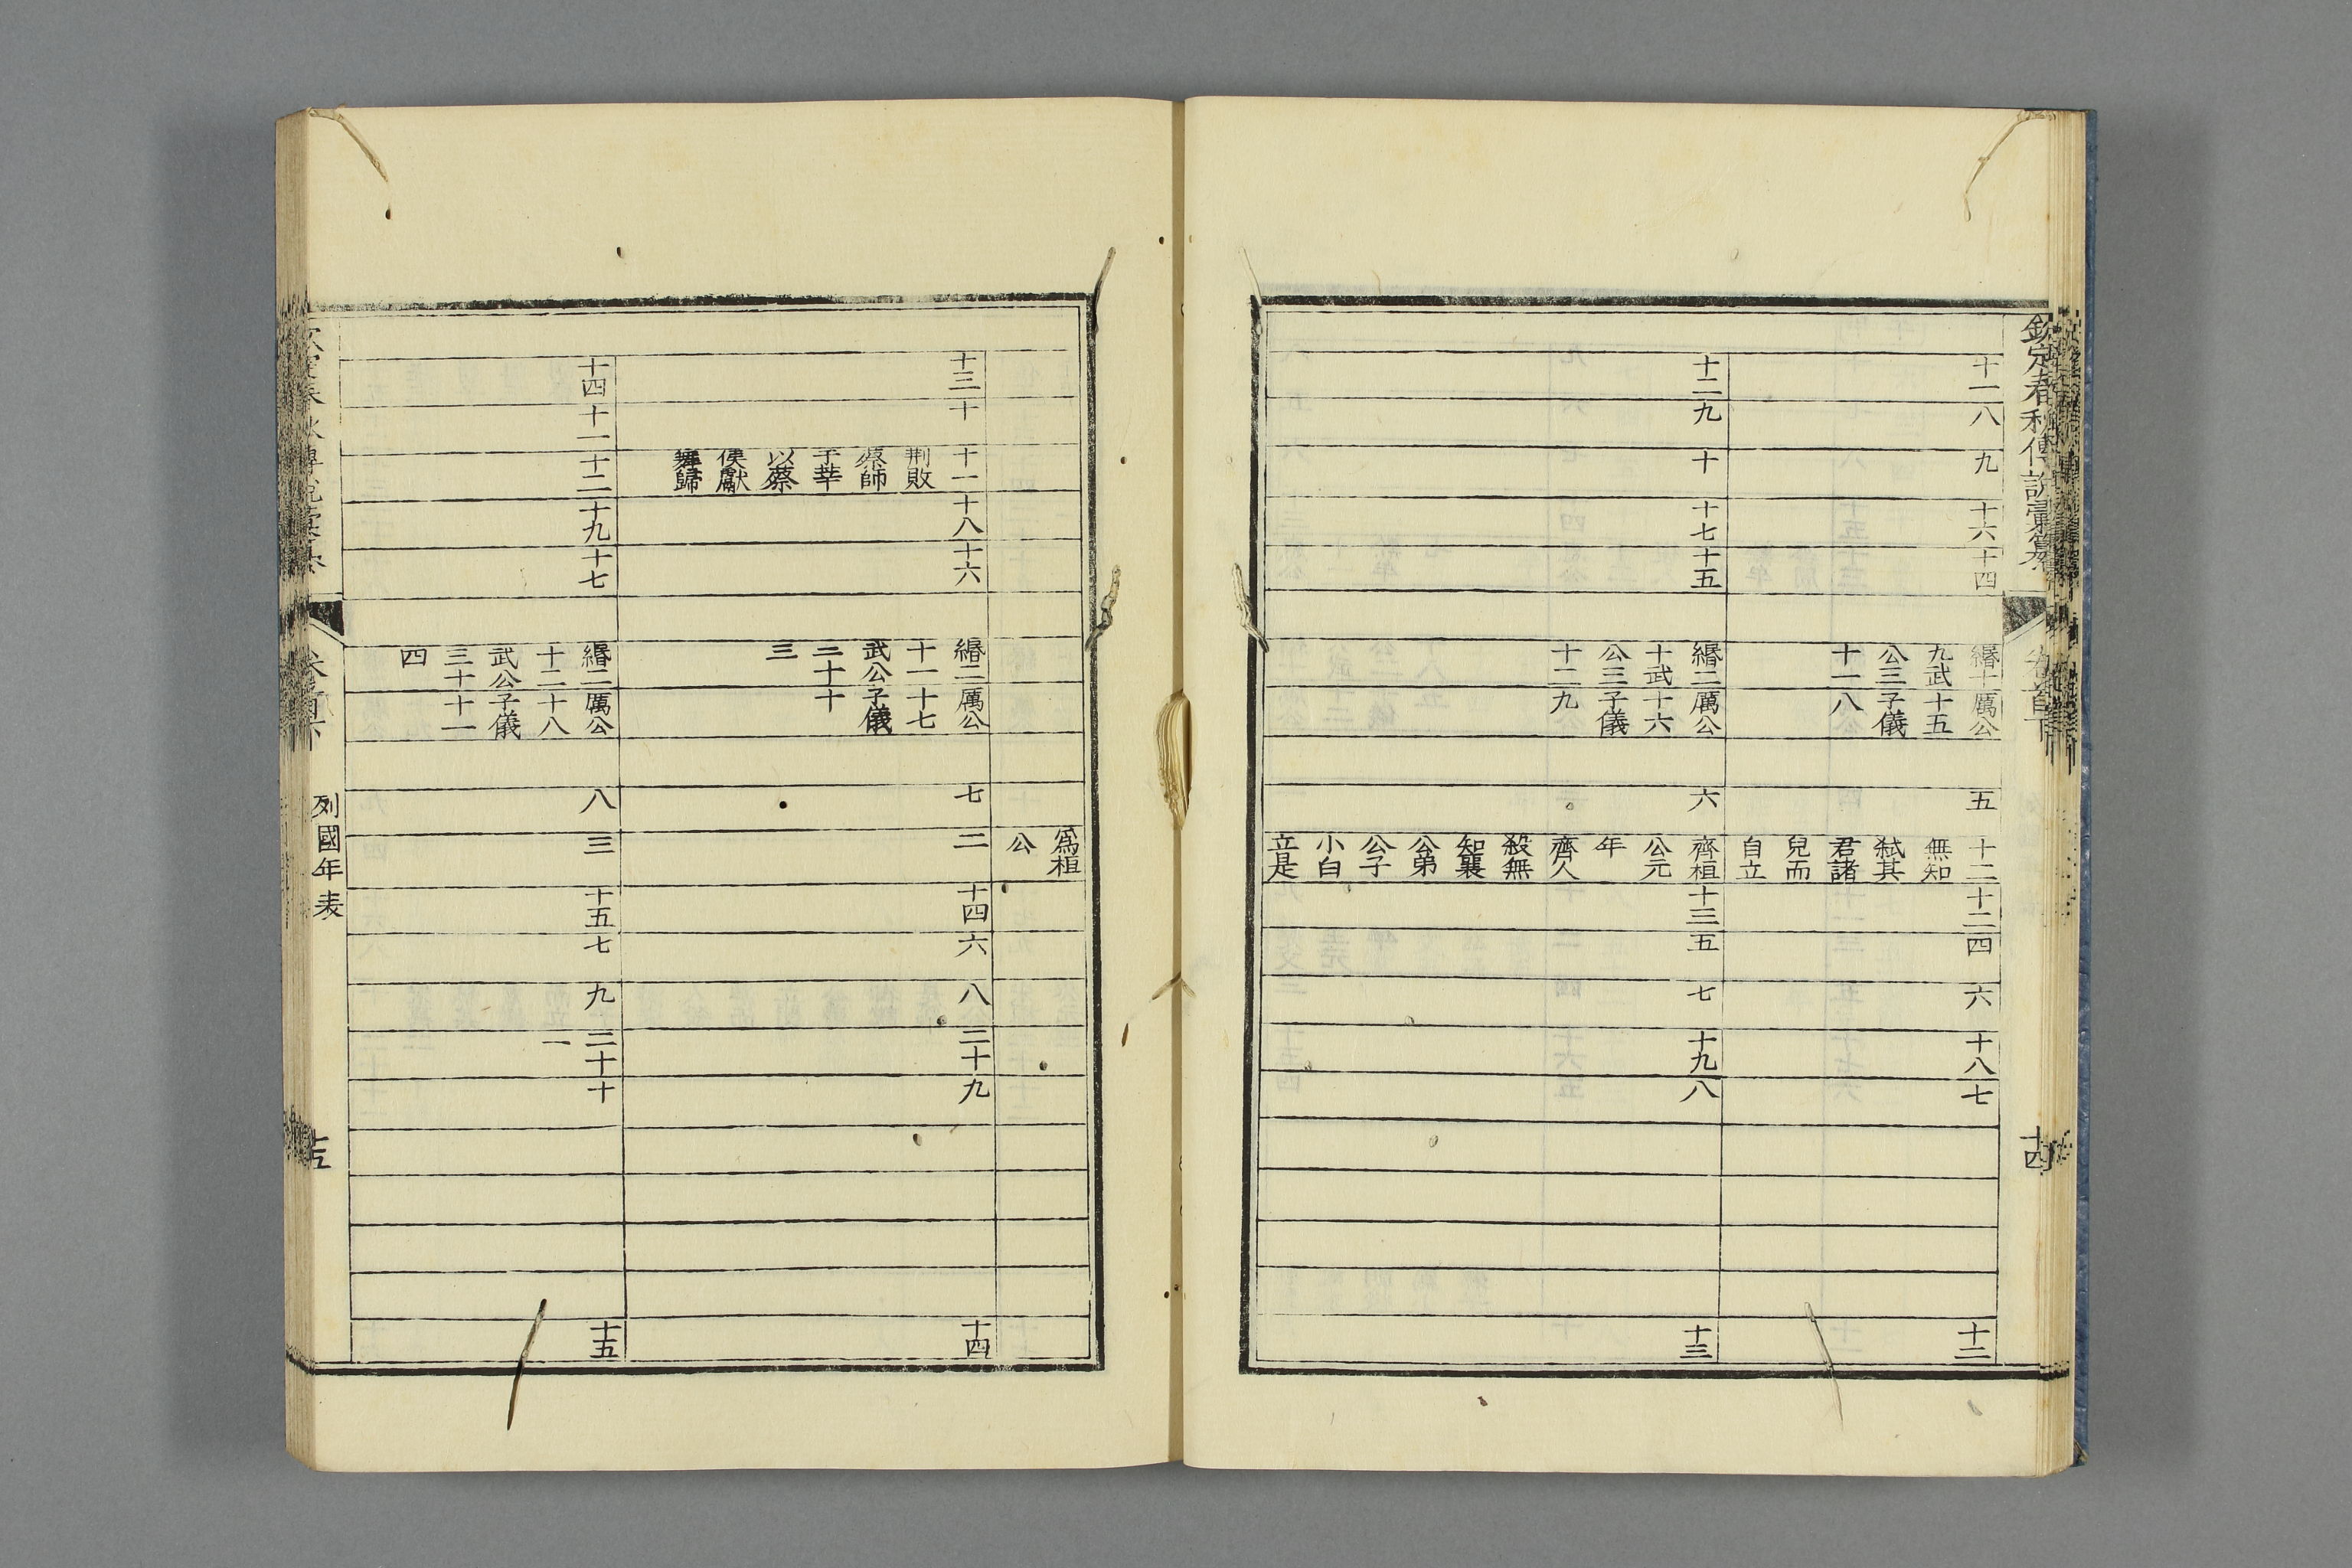 欽定春秋傳說彙纂
卷首下
十四
十一
八
九
十六
十四
緡十九武公三十一
厲公十五子儀八
五
十二無知弒其君諸兒而自立
十二
四
六
十八
七
十二
十二
九
十
十七
十五
緡二十武公三十二
厲公十六子儀九
六
齊桓公元年齊人殺無知襄公弟公子小白立是
十三
五
七
十九
八
十三
爲桓公
十三
十
十一荆敗蔡師于莘以蔡侯獻舞歸
十八
十六
緡二十一武公三十三
厲公十七子儀十
七
二
十四
六
八
二十
九
十四
十四
十一
十二
十九
十七
緡二十二武公三十四
厲公十八子儀十一
八
三
十五
七
九
二十一
十
十五
欽定春秋傳說彙纂
卷首下
列國年表
十五